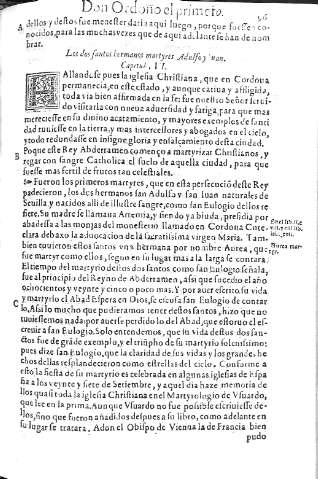 Don Ordoño el primero. 56
A dellos y destos fue menester dar aqui luego, porque fuessen co-
nocidos, para las muchas vezes que de aqui adelante se han de nom
brar.
Los dos santos hermanos martyres Adulfo y Iuan.
Capitul. VI.
Hallandose pues la iglesia Christiana, que en Cordoua
permanecia, en este estado, y aunque catiua y afligida,
toda via bien affirmada en la fe: fue nuestro Señor serui-
do visitarla con nueua aduersidad y fatiga, para que mas
mereciesse en su diuino acatamiento, y mayores exemplos de sanct
dad tuuiesse en la tierra, y mas intercessores y abogados en el cielo,
y todo redundasse en insigne gloria y ensalçamiento desta ciudad.
B Porque este Rey Abderramen començo a martyrizar Christianos, y
regar con sangre Catholica el suelo de aquella ciudad, para que
fuesse mas fertil de frutos tan celestiales.
Fueron los primeros martyres, que en esta persecucion deste Rey
padecieron, los dos hermanos san Adulfo y san Iuan naturales de
Seuilla y nacidos alli de illustre sangre, como san Eulogio dellos re
fiere. Su madre se llamaua Artemia, y siendo ya biuda, presidia por
abadessa a las monjas del monesterio llamado en Cordoua Cute
clara debaxo la aduocacion de la sacratissima virgen Maria. Tam-
bien tuuieron estos santos vna hermana por nombre Aurea, que
fue martyr como ellos, segun en su lugar mas a la larga se contara.
El tiempo del martyrio destos dos santos como san Eulogio señala,
fue al principio del Reyno de Abderramen, y assi que sucedio el año
ochocientos y veynte y cinco o poco mas. Y por auer escrito su vida
C y martyrio el Abad Espera en Dios, se escusa san Eulogio de contar
lo. Assi lo mucho que pudieramos tener destos santos, hizo que no
tuuiessemos nada por auerse perdido lo del Abad, que estoruo el es-
creuir a san Eulogio. Solo entendemos, que su vida destos dos san-
ctos fue de gran exemplo, y el triunpho de su martyrio solennissimo
pues dize san Eulogio, que la claridad de sus vidas y los grandes he
chos dellas resplandecieron como estrellas del cielo. Conforme a
esto la fiesta de su martyrio es celebrada en algunas iglesias de Espa
ña a los veynte y siete de Setiembre, y aquel dia haze memoria de
llos quasi toda la iglesia Christiana en el Martyrologio de Vsuardo,
que lee en la prima. Aunque Vsuardo no fue possible escriuiesse de-
llos, sino que fueron añadidos despues a su libro, como adelante en
su lugar se tratara. Adon el Obispo de Vienna la de Francia bien
pudo